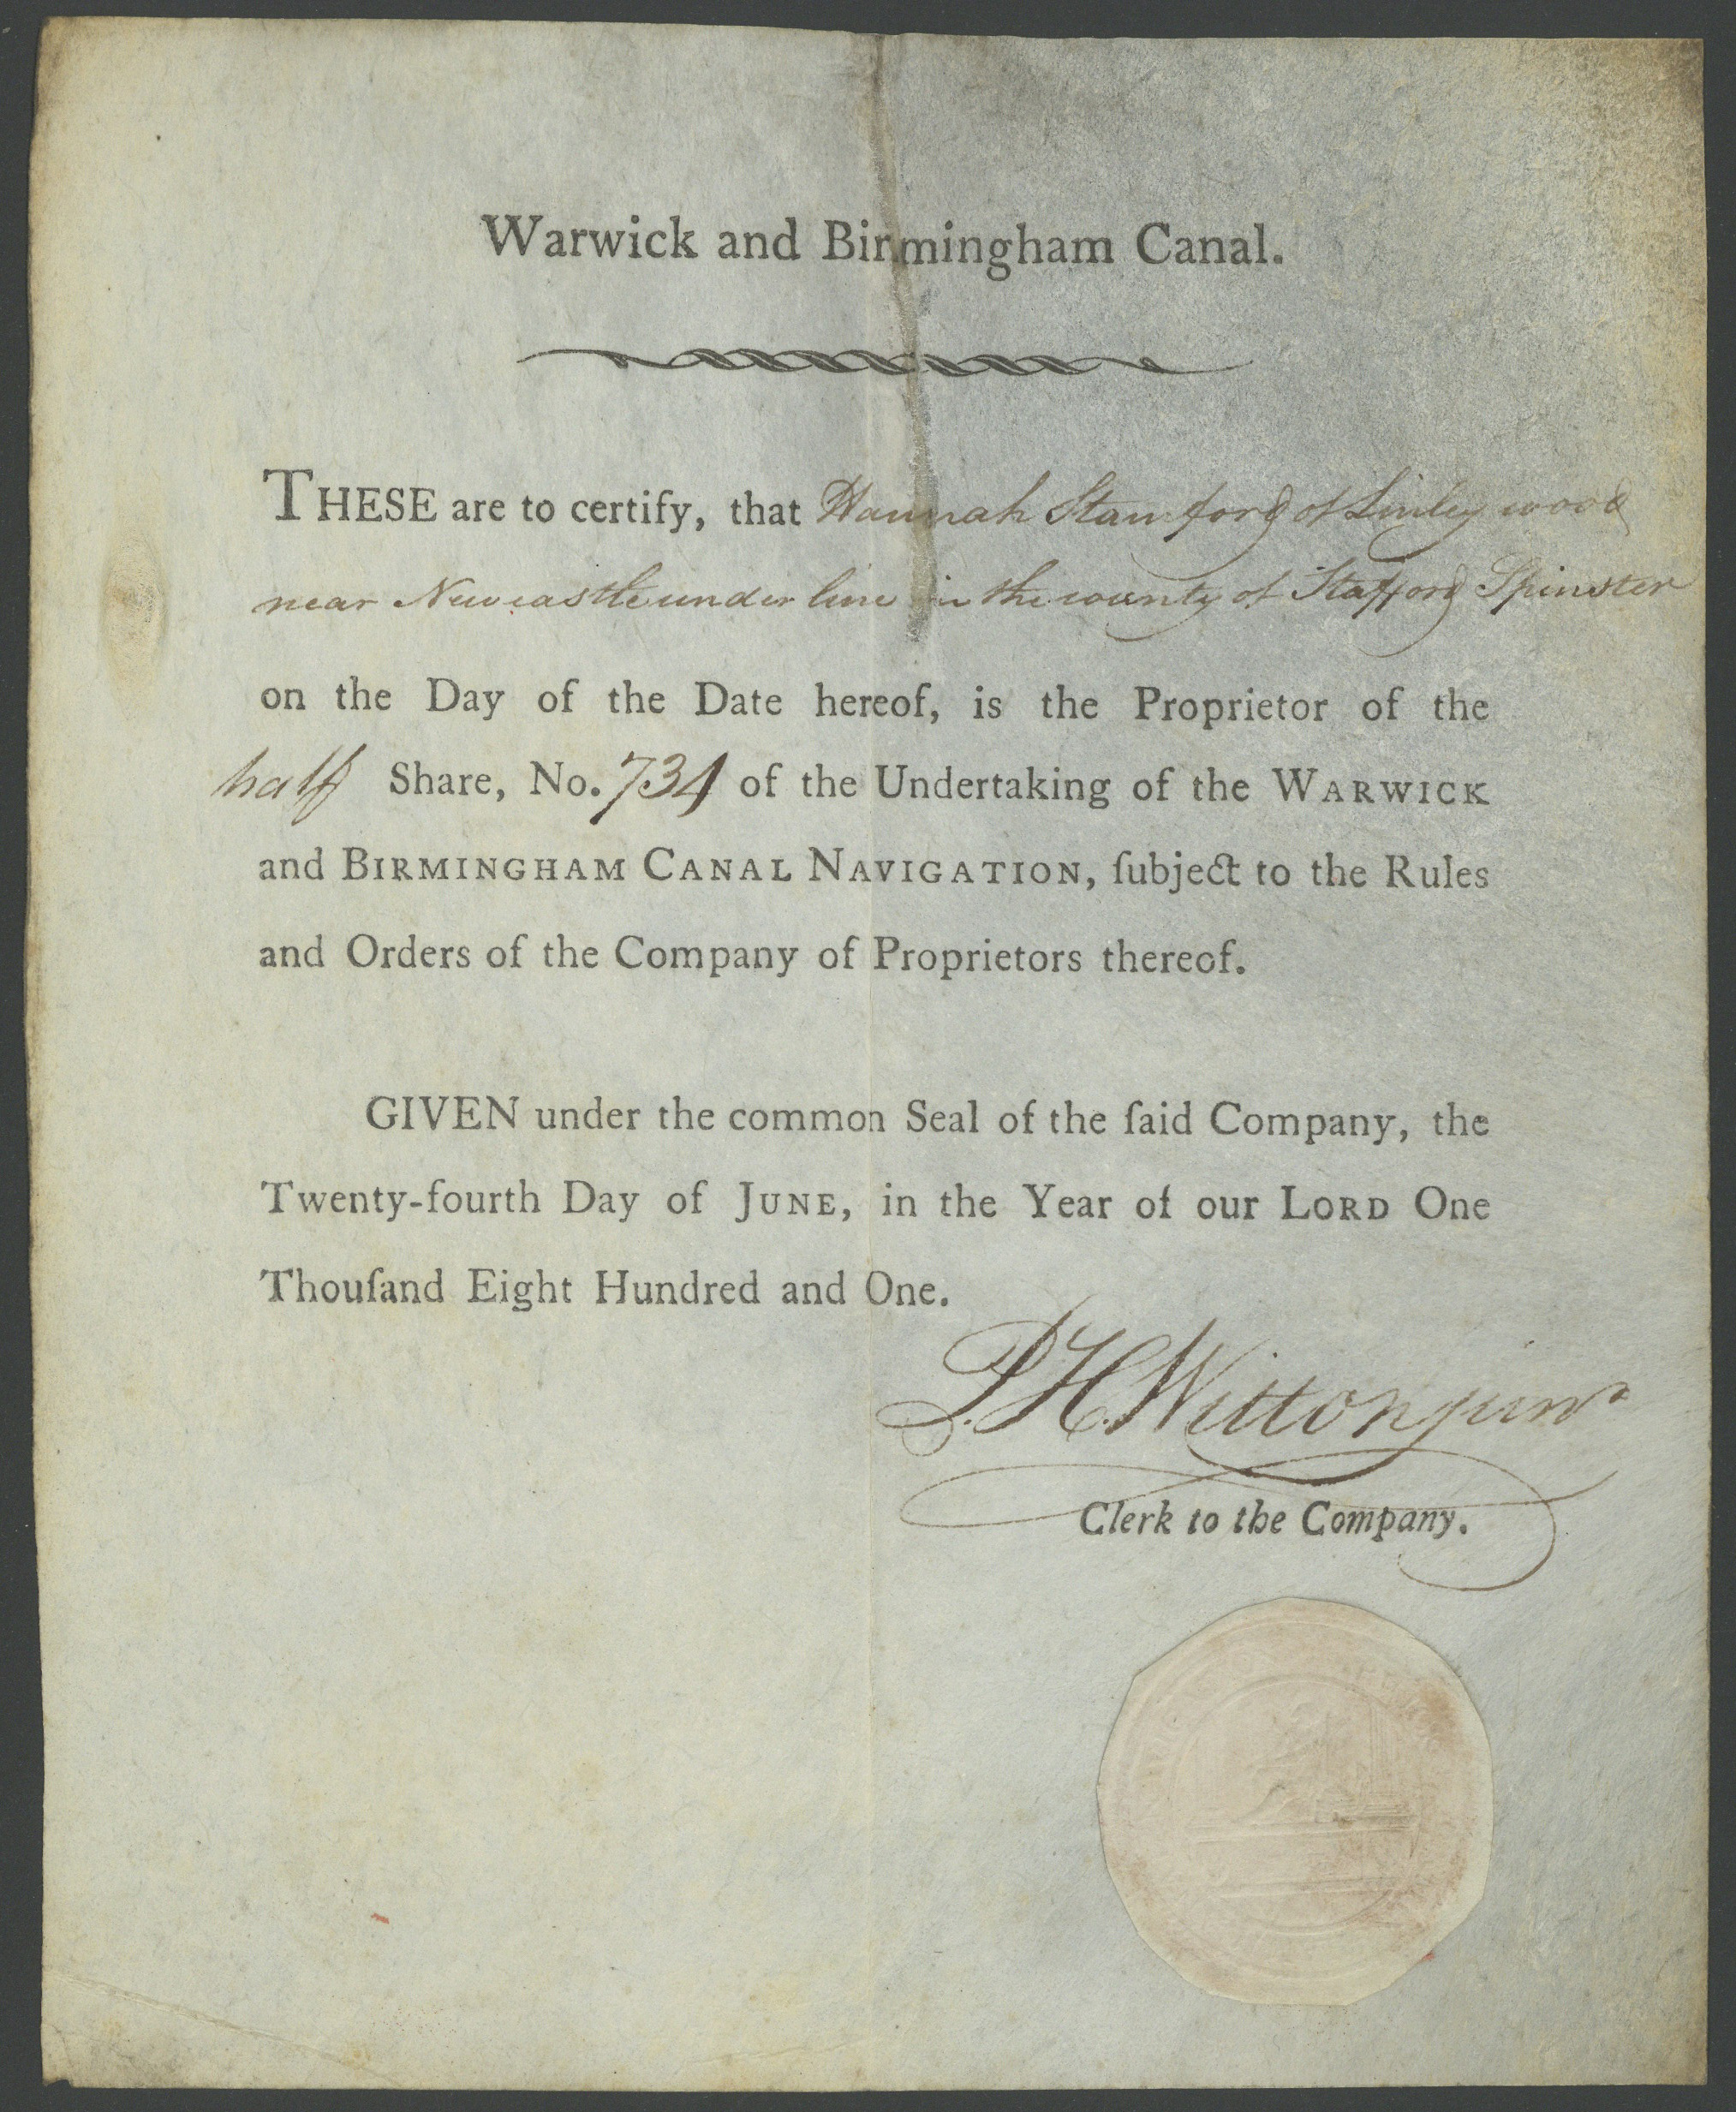 Warwick and Birmingham Canal.
THESE are to certify, that Hannah Stamford of Linley wood
near Newcastle under line in the county of Stafford Spinster
on the Day of the Date hereof, is the Proprietor of the
half Share, No. 734 of the Undertaking of the WARWICK
and BIRMINGHAM CANAL NAVIGATION, ſubject to the Rules
and Orders of the Company of Proprietors thereof.
GIVEN under the common Seal of the ſaid Company, the
Twenty-fourth Day of JUNE, in the Year of our LORD One
Thouſand Eight Hundred and One.
P. H. Witton junr
Clerk to the Company.